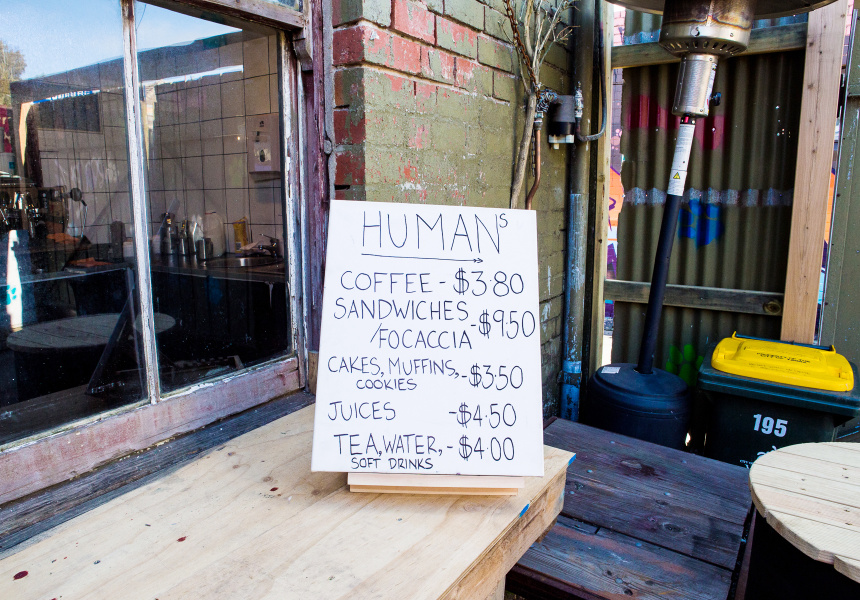 HUMANs
COFFEE - $3.80
SANDWICHES
/FOCACCIA - $9.50
CAKES, MUFFINS, - $3.50
COOKIES
JUICES - $4.50
TEA, WATER, - $4.00
SOFT DRINKS
195